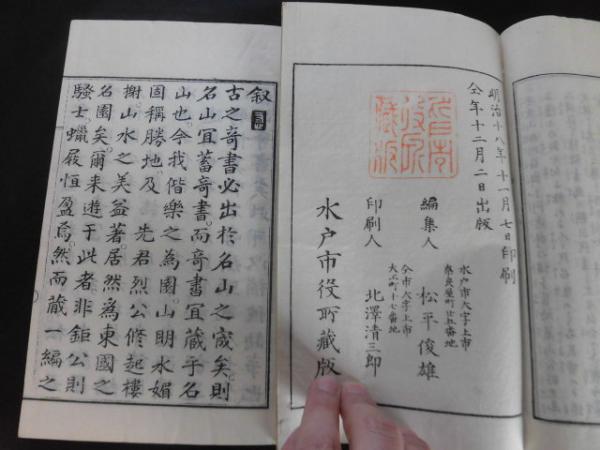 明治十八年十一月七日印刷
仝年十二月二日出版
水戸市大字上市
奈良屋町廿五番地
編集人 松平俊雄
仝市大字上市
大工町十七番地
印刷人 北澤清三郎
水戸市役所藏版
叙
古之奇書必出於名山之宬矣則
名山宜蓄奇書而奇書宜藏于名
山也今我偕樂之為園山明水媚
固稱勝地及 先君烈公修起樓
榭山水之美益著居然為東國之
名園矣爾来遊于此者非鉅公則
騷士蠟屐恒盈焉然而藏一編之